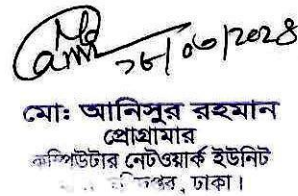 ২৮/০৩/২০২৪
মোঃ আনিসুর রহমান
প্রোগ্রামার
কম্পিউটার নেটওয়ার্ক ইউনিট
ঢাকা।